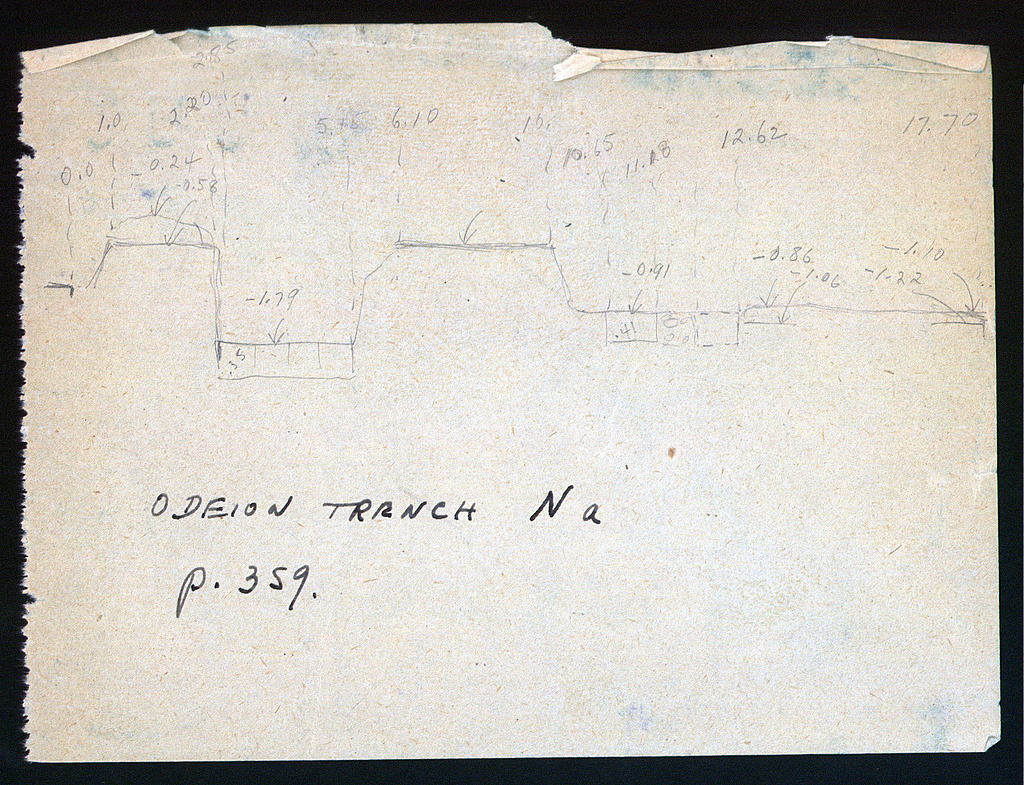 2.85
1.0 2.20 6.10 12.62 17.70
10.65 11.18
0.0 -0.24
-0.58
-0.86 -1.10
-0.91 -1.06 -1.22
-1.79
.41
.35
ODEION TRENCH Na
p. 359.